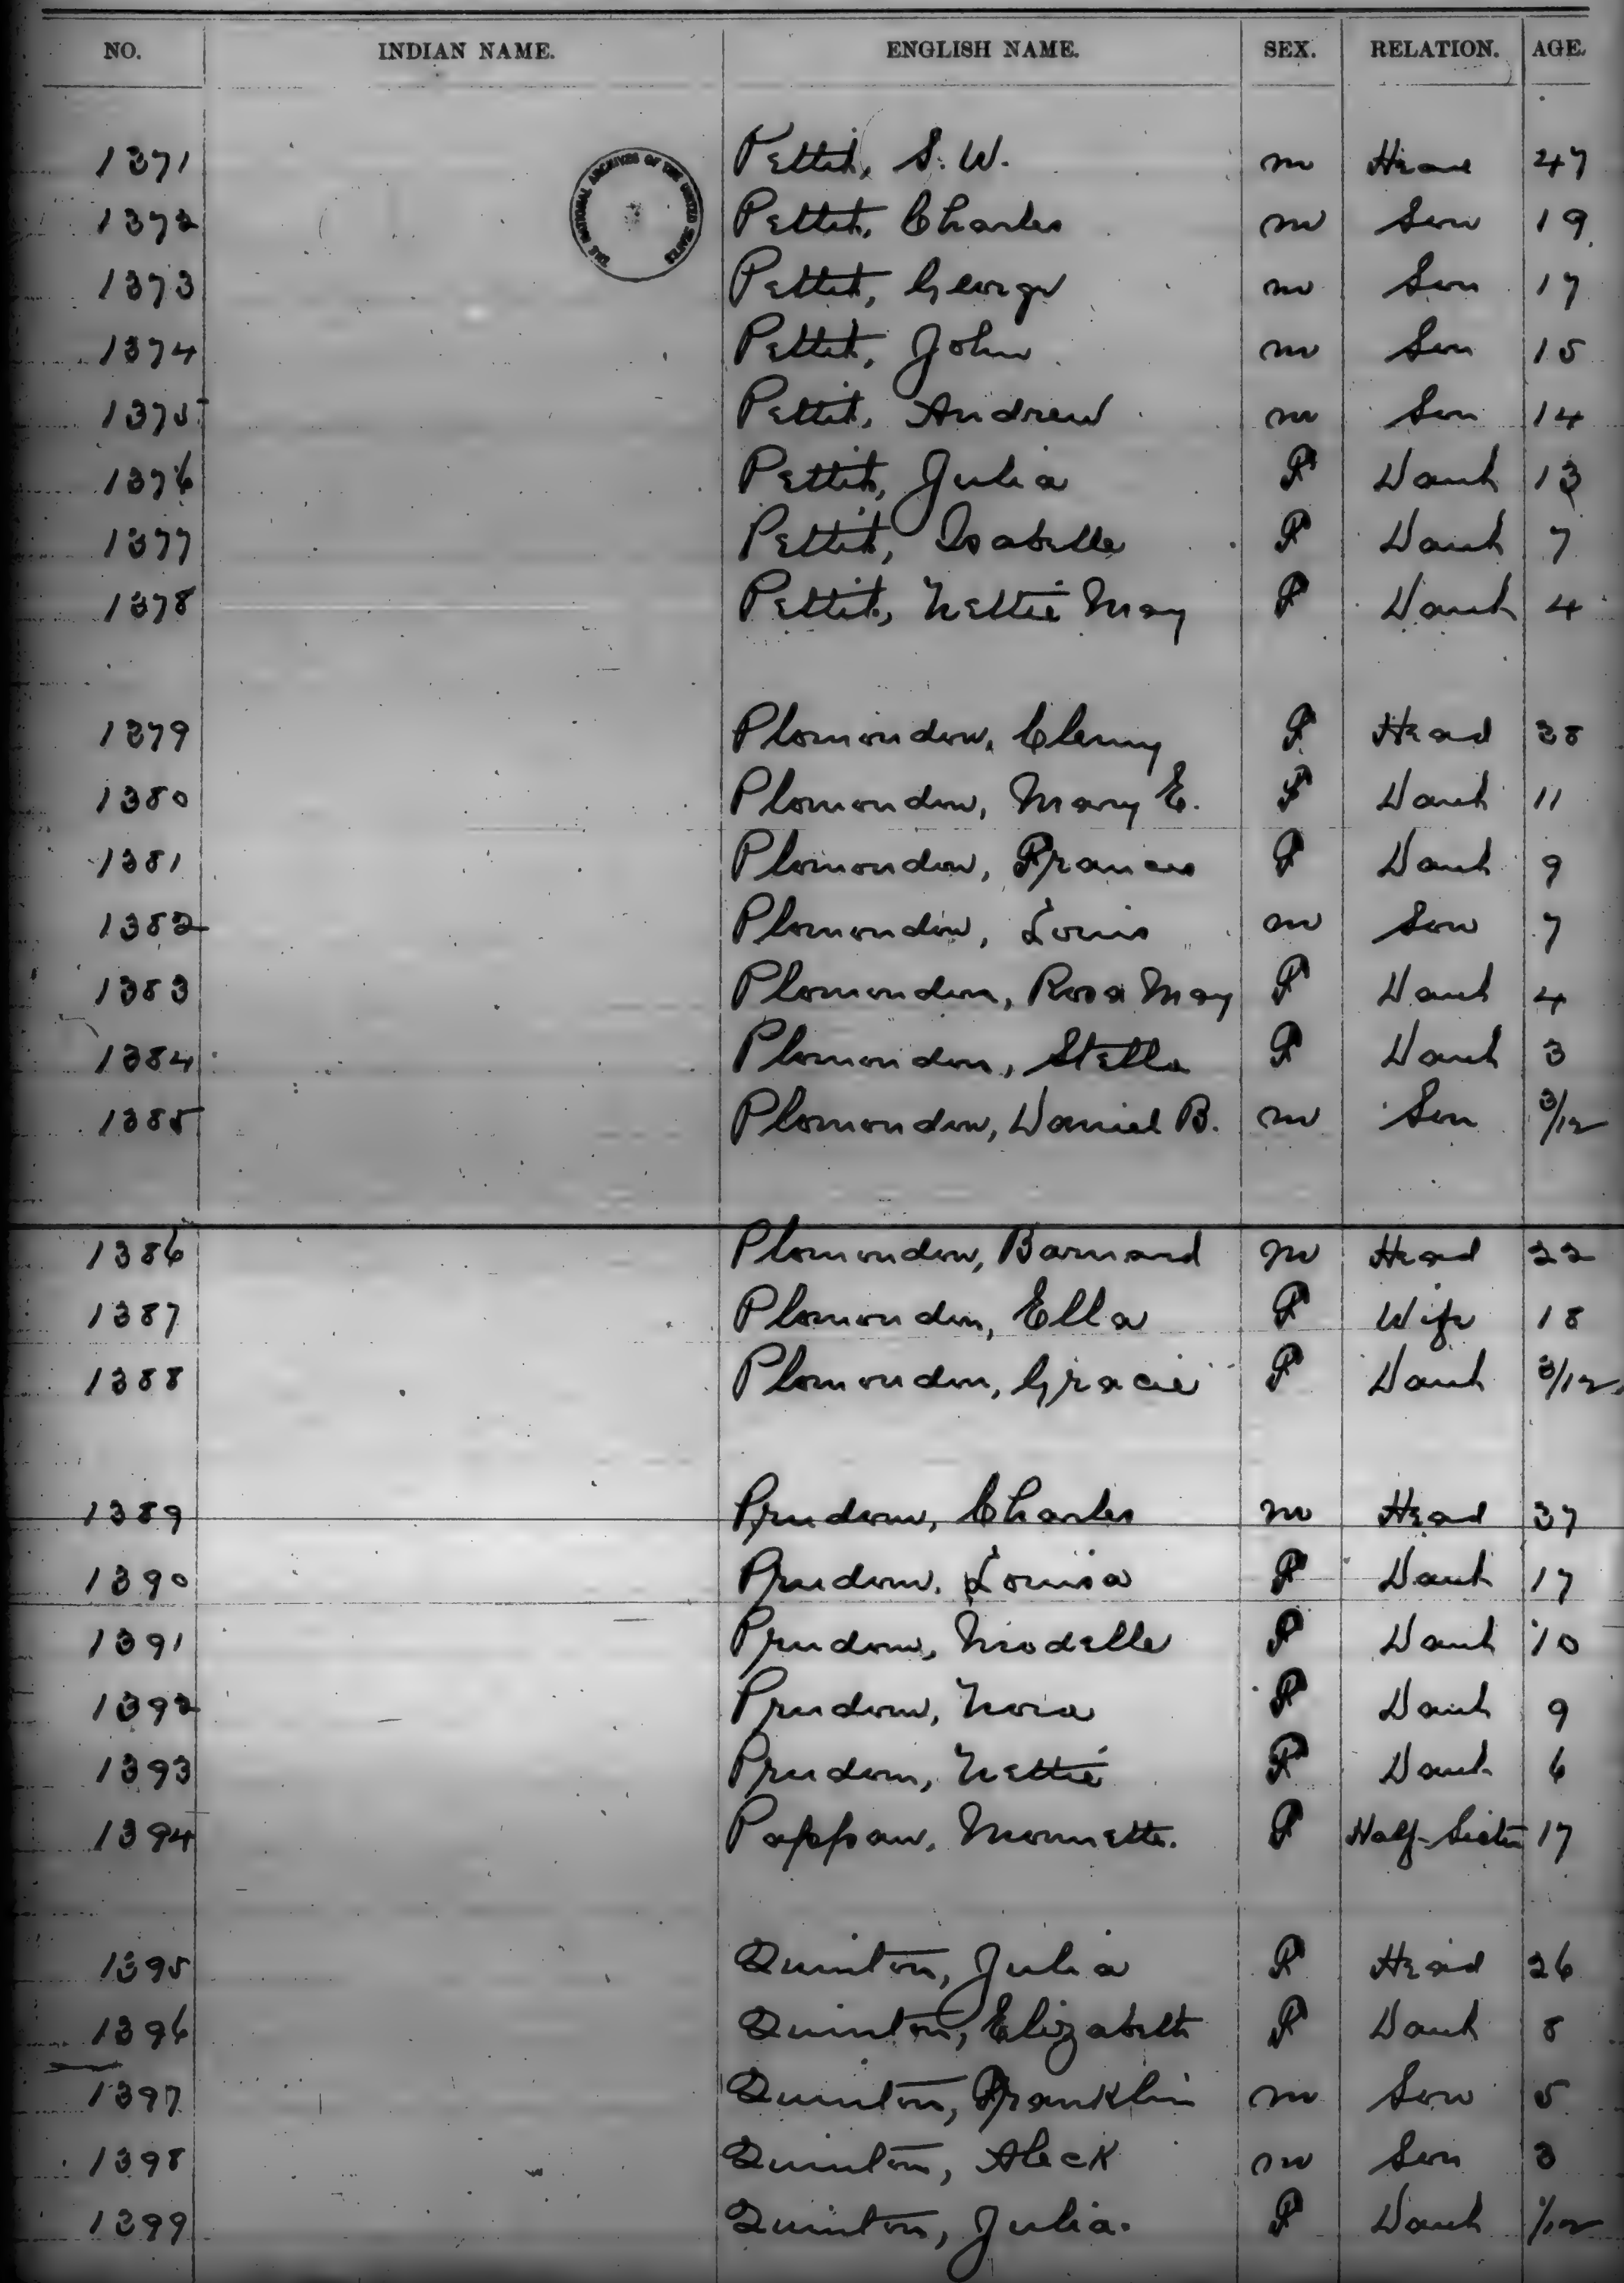 NO. INDIAN NAME. ENGLISH NAME. SEX. RELATION. AGE.
THE NATIONAL ARCHIVES OF THE UNITED STATES
1371 Pettit, S. W. m Head 47
1372 Pettit, Charles m Son 19
1373 Pettit, George m Son 17
1374 Pettit, John m Son 15
1375 Pettit, Andrew m Son 14
1376 Pettit, Julia F Dauh 13
1377 Pettit, Isabelle F Dauh 7
1378 Pettit, Nettie May F Dauh 4
1379 Plomondon, Clemy F Head 38
1380 Plomondon, Mary E. F Dauh 11
1381 Plomondon, Frances F Dauh 9
1382 Plomondon, Louis m Son 7
1383 Plomondon, Rosa May F Dauh 4
1384 Plomondon, Stella F Dauh 3
1385 Plomondon, Daniel B. m Son 3/12
1386 Plomondon, Barnard m Head 22
1387 Plomondon, Ella F Wife 18
1388 Plomondon, Gracie F Dauh 3/12
1389 Prudom, Charles m Head 37
1390 Prudom, Louisa F Dauh 17
1391 Prudom, Modelle F Dauh 10
1392 Prudom, Nora F Dauh 9
1393 Prudom, Nettie F Dauh 6
1394 Pappan, F Half-Sister 17
1395 Quinton, Julia F Head 26
1396 Quinton, Elizabeth F Dauh 8
1397 Quinton, Franklin m Son 5
1398 Quinton, Aleck m Son 3
1399 Quinton, Julia. F Dauh 1/12